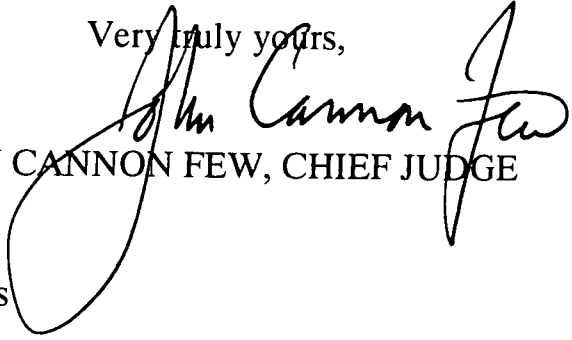 Very truly yours,
John Cannon Few
CANNON FEW, CHIEF JUDGE
s